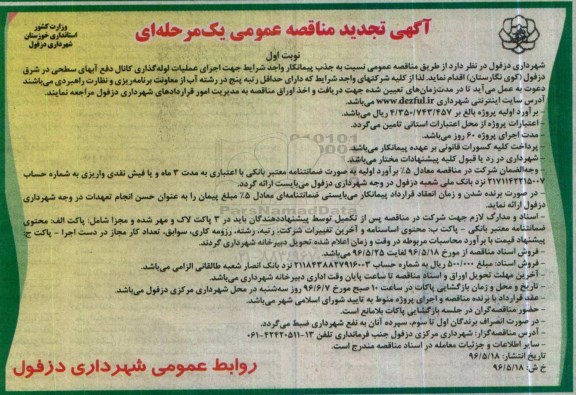 وزارت کشور
استانداری خوزستان
شهرداری دزفول
آگهی تجدید مناقصه عمومی یک‌مرحله‌ای
نوبت اول
شهرداری دزفول در نظر دارد از طریق مناقصه عمومی نسبت به جذب پیمانکار واجد شرایط جهت اجرای عملیات لوله‌گذاری کانال دفع آبهای سطحی در شرق
دزفول (کوی نگارستان) اقدام نماید. لذا از کلیه شرکتهای واجد شرایط که دارای حداقل رتبه پنج در رشته آب از معاونت برنامه‌ریزی و نظارت راهبردی می‌باشند
دعوت به عمل می‌آید تا در مدت‌زمان‌های تعیین شده جهت دریافت و اخذ اوراق مناقصه به مدیریت امور قراردادهای شهرداری دزفول مراجعه نمایند.
آدرس سایت اینترنتی شهرداری www.dezful.ir می‌باشد.
- برآورد اولیه پروژه بالغ بر ۴/۳۵۰/۷۴۳/۴۵۷ می‌باشد.
- اعتبارات پروژه از محل اعتبارات استانی تامین می‌گردد.
- مدت اجرای پروژه ۶۰ روز می‌باشد.
- پرداخت کلیه کسورات قانونی بر عهده پیمانکار می‌باشد.
- شهرداری در رد یا قبول کلیه پیشنهادات مختار می‌باشد.
- وجه‌الضمان شرکت در مناقصه معادل ۵٪ برآورد اولیه به صورت ضمانتنامه معتبر بانکی با اعتباری به مدت ۳ ماه و یا فیش نقدی واریزی به شماره حساب
۲۱۷۱۱۴۴۲۱۵۰۰۷ نزد بانک ملی شعبه دزفول در وجه شهرداری دزفول می‌بایست ارائه گردد.
- در صورت برنده شدن و زمان انعقاد قرارداد پیمانکار می‌بایستی ضمانتنامه‌ای معادل ۵٪ مبلغ پیمان را به عنوان حسن انجام تعهدات در وجه شهرداری
دزفول ارائه نماید.
- اسناد و مدارک لازم جهت شرکت در مناقصه پس از تکمیل توسط پیشنهاددهندگان باید در ۳ پاکت لاک و مهر شده و مجزا شامل: پاکت الف: محتوی
ضمانتنامه معتبر بانکی - پاکت ب: محتوی اساسنامه و آخرین تغییرات شرکت، رتبه، رشته، رزومه کاری، سوابق، تعداد کار مجاز در دست اجرا - پاکت ج:
پیشنهاد قیمت با برآورد محاسبات مربوطه در وقت و زمان اعلام شده تحویل دبیرخانه شهرداری گردند.
- فروش اسناد مناقصه از مورخ ۹۶/۵/۱۸ لغایت ۹۶/۵/۲۵ می‌باشد.
- فروش اسناد مبلغ ۵۰۰/۰۰۰ ریال به شماره حساب ۲۱۱۸۴۳۸۸۲۷۹۱۶۰۰۳ نزد بانک انصار شعبه طالقانی الزامی می‌باشد.
- آخرین مهلت تحویل اوراق و اسناد مناقصه تا ساعت پایان وقت اداری دبیرخانه شهرداری می‌باشد.
- تاریخ و محل و زمان بازگشایی پاکات در ساعت ۱۰ صبح مورخ ۹۶/۶/۷ روز سه‌شنبه در محل شهرداری مرکزی دزفول می‌باشد.
- عقد قرارداد با برنده مناقصه و اجرای پروژه منوط به تایید شورای اسلامی شهر می‌باشد.
- حضور مناقصه‌گران در جلسه بازگشایی پاکات بلامانع است.
- در صورت انصراف برندگان اول تا سوم، سپرده آنان به نفع شهرداری ضبط می‌گردد.
- آدرس مناقصه‌گزار: شهرداری مرکزی دزفول جنب فرمانداری تلفن ۱۳-۴۲۴۲۰۵۱۱-۰۶۱
- سایر اطلاعات و جزئیات معامله در اسناد مناقصه مندرج است.
تاریخ انتشار: ۹۶/۵/۱۸
خ ش: ۹۶/۵/۱۸
روابط عمومی شهرداری دزفول